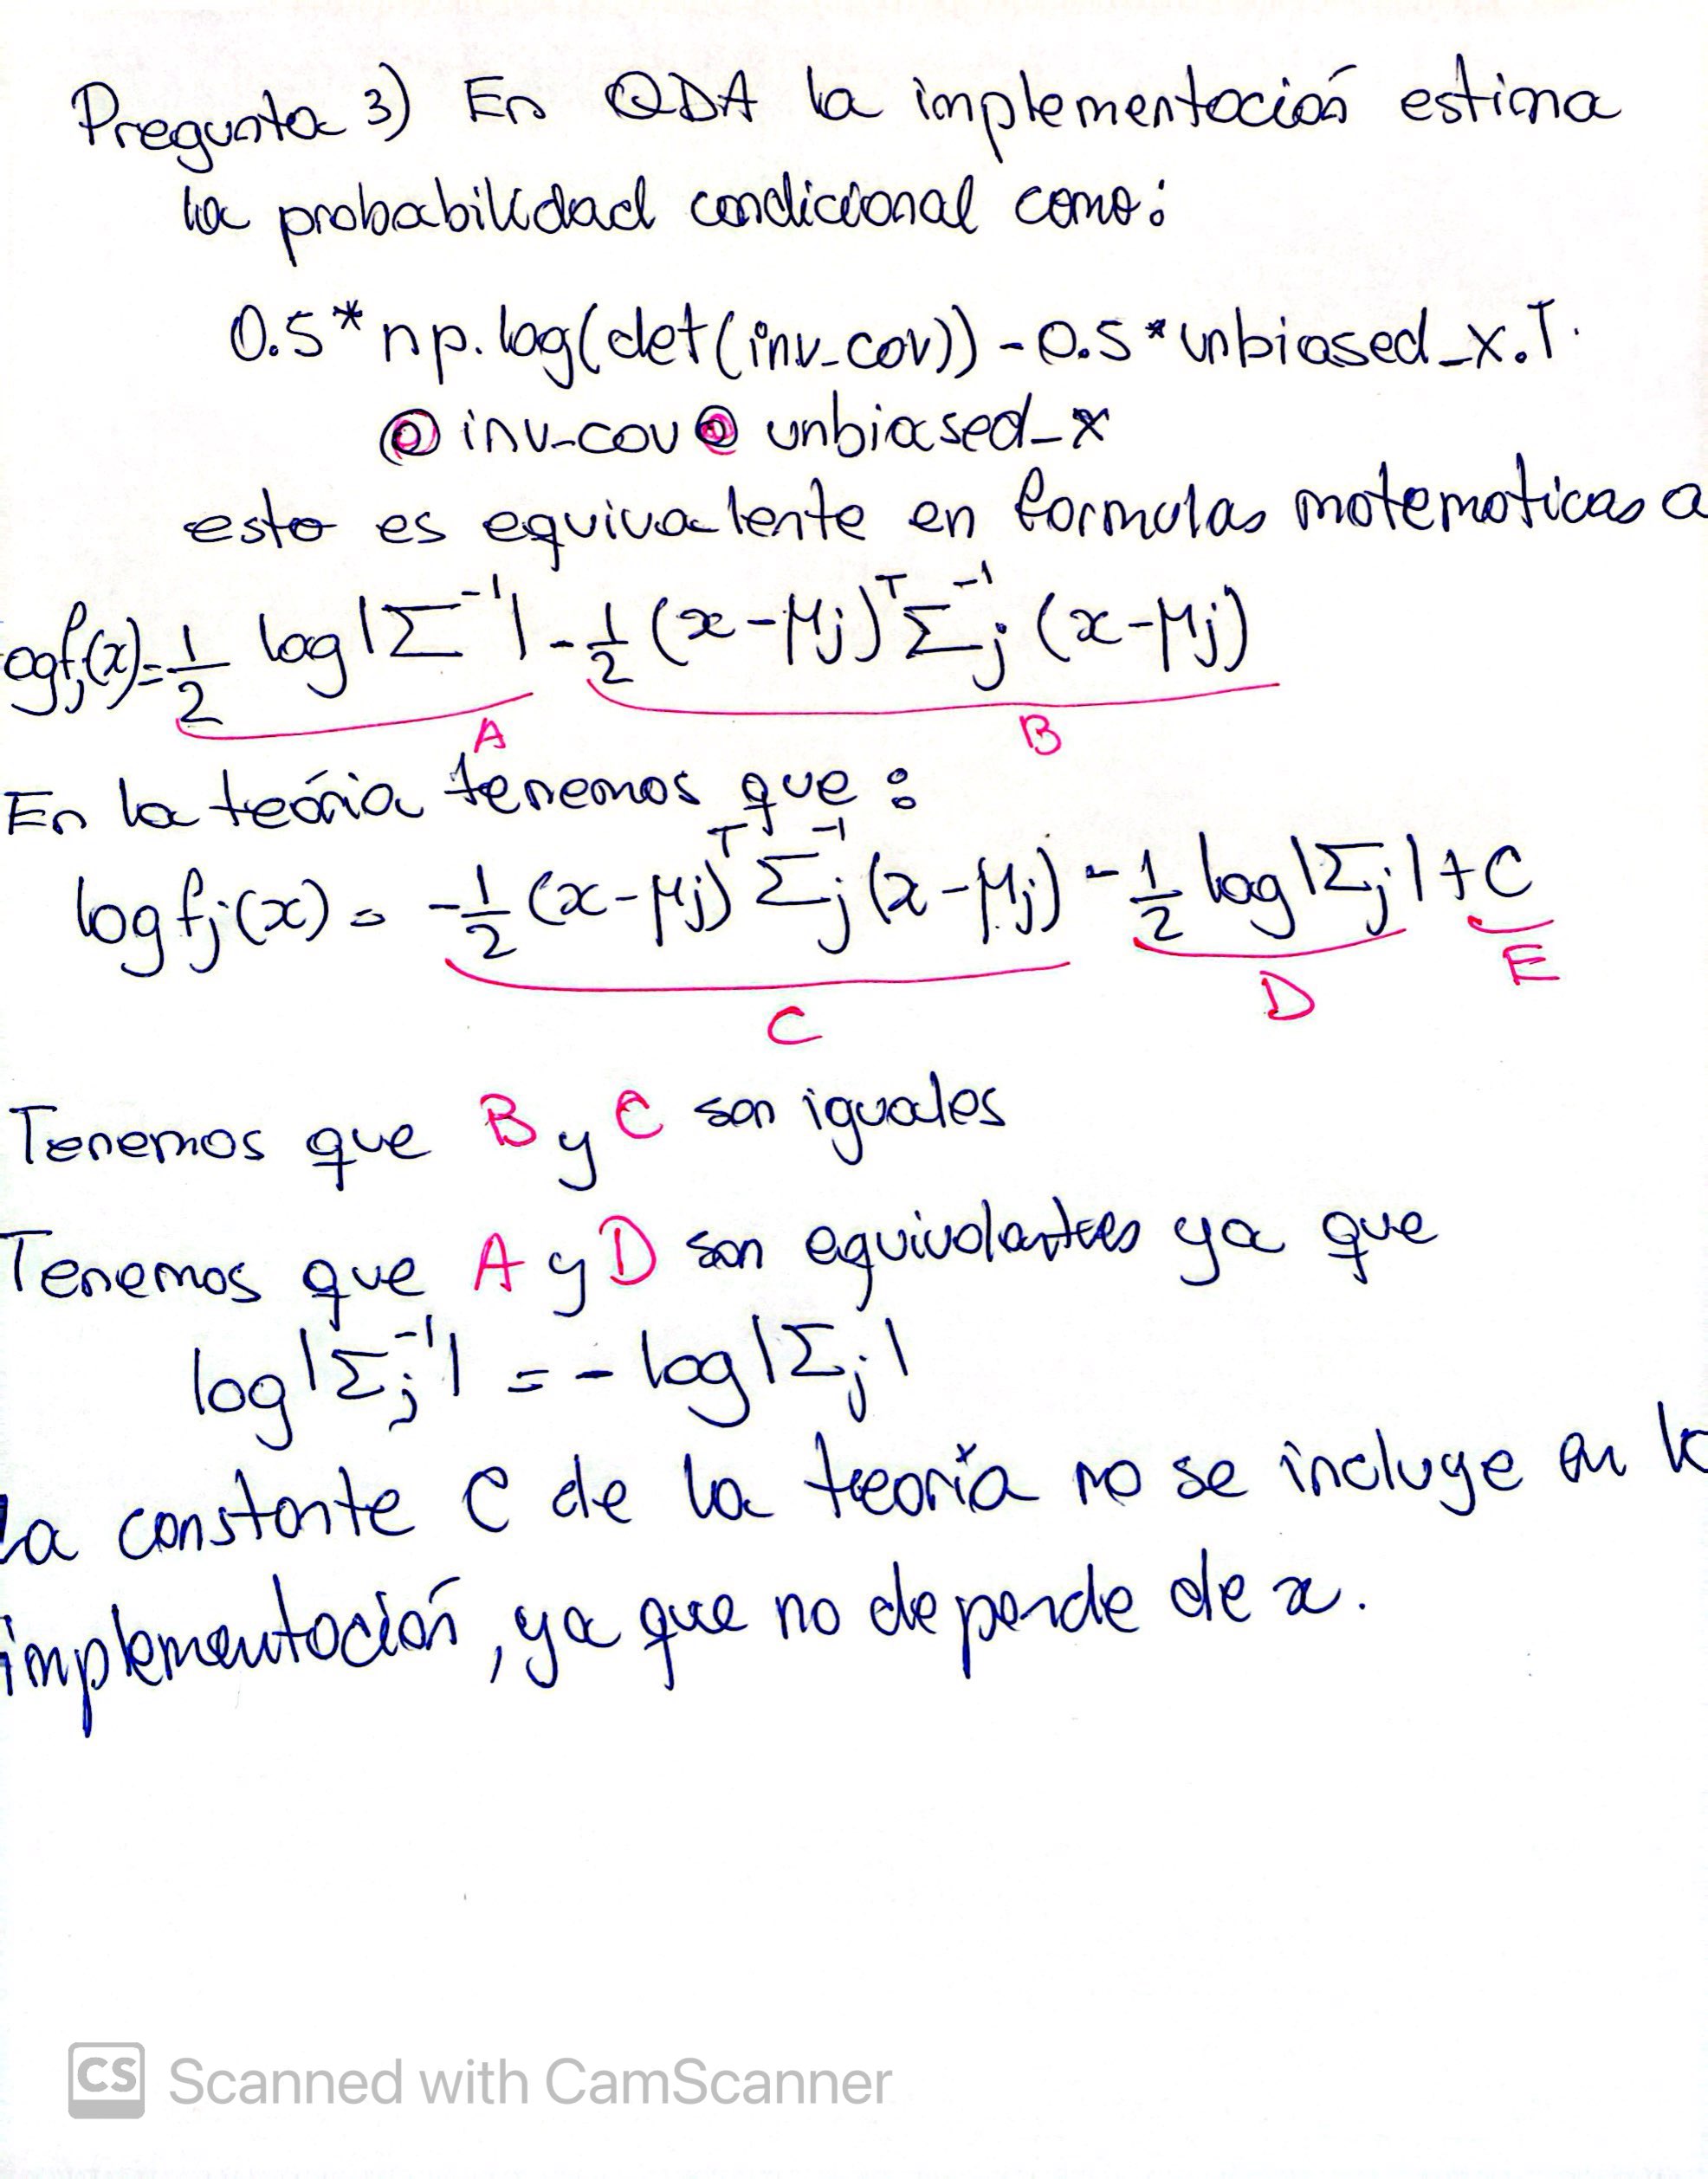 Pregunta 3) En QDA la implementación estima
la probabilidad condicional como:
0.5*np.log(det(inv_cov)) - 0.5*unbiased_x.T.
@ inv-cov @ unbiased_x
esto es equivalente en formulas matematicas a
ogfj(x)=1/2 log|Σ^-1| - 1/2 (x-μj)^T Σj^-1 (x-μj)
A B
En la teória tenemos que:
log fj(x) = -1/2 (x-μj)^T Σj^-1 (x-μj) - 1/2 log|Σj| + C
C D E
Tenemos que B y C son iguales
Tenemos que A y D son equivalentes ya que
log|Σj^-1| = - log|Σj|
la constante C de la teoria no se incluye en l
implementación, ya que no depende de x.
CS Scanned with CamScanner